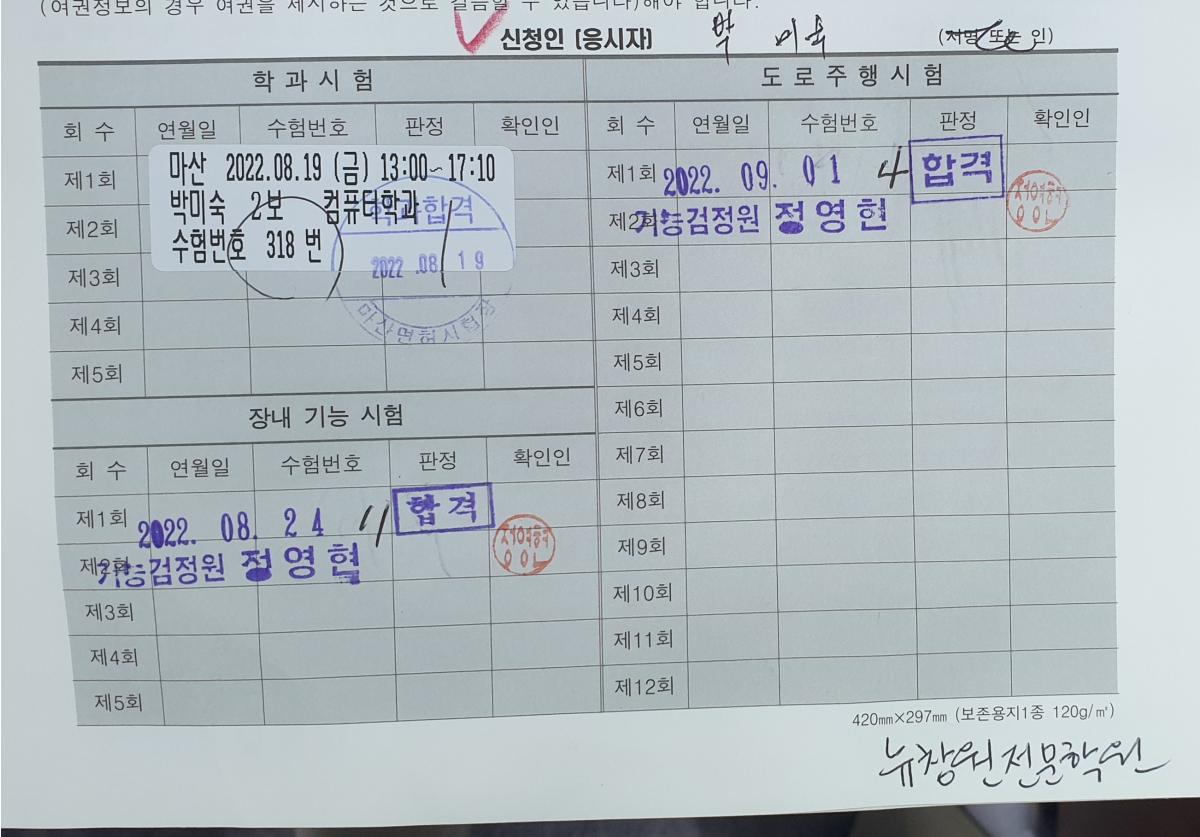 (여권정보의 경우 여권을 제시하는 것으로 갈음할 수 있습니다)해야 합니다.
신청인 (응시자) 박 미숙 (서명 또는 인)
학 과 시 험
회 수 연월일 수험번호 판정 확인인
제1회
제2회
제3회
제4회
제5회
마산 2022.08.19 (금) 13:00~17:10
박미숙 2보 컴퓨터학과
수험번호 318 번
합격
2022.08.19
마산면허시험장
장내 기능 시험
회 수 연월일 수험번호 판정 확인인
제1회 2022. 08. 24 11 합격
제2회 기능검정원 정영현
제3회
제4회
제5회
도 로 주 행 시 험
회 수 연월일 수험번호 판정 확인인
제1회 2022. 09. 01 4 합격
제2회 기능검정원 정영현
제3회
제4회
제5회
제6회
제7회
제8회
제9회
제10회
제11회
제12회
420㎜×297㎜ (보존용지1종 120g/㎡)
뉴창원전문학원